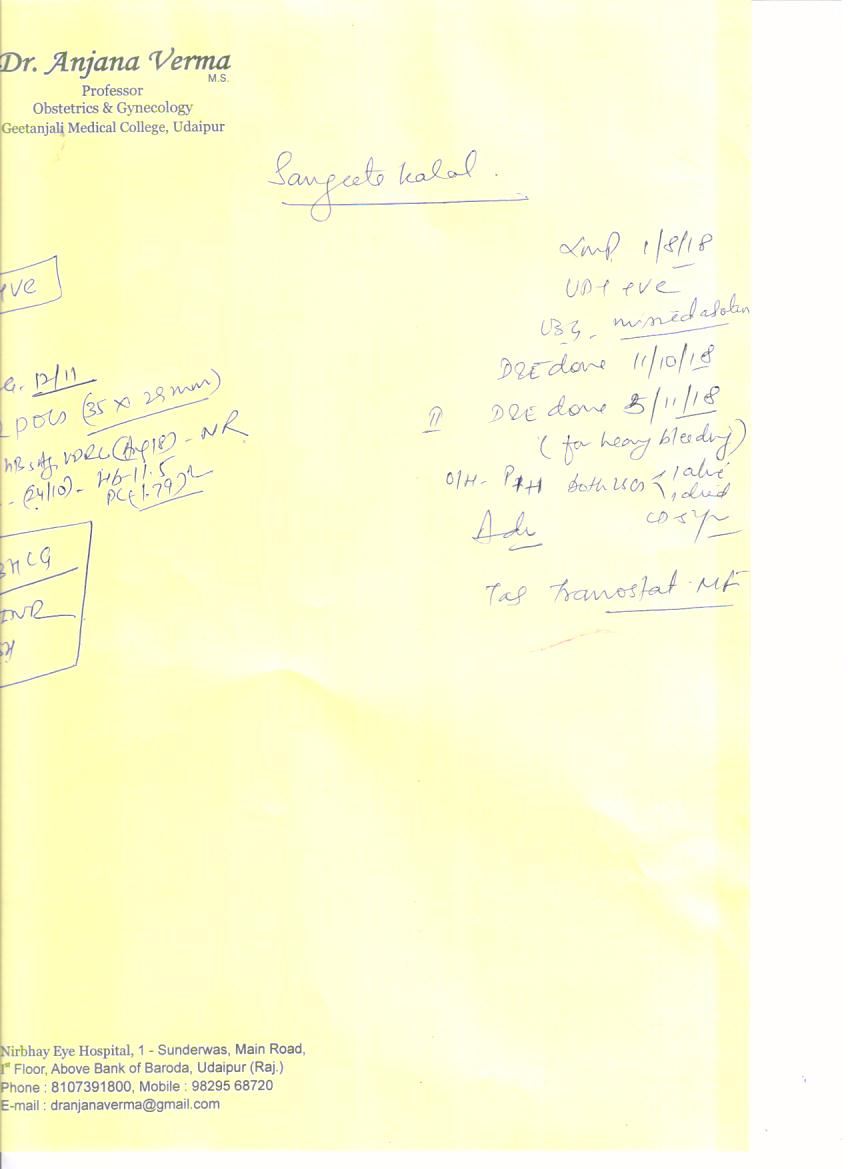 Dr. Anjana Verma
M.S.
Professor
Obstetrics & Gynecology
Geetanjali Medical College, Udaipur
Sangeeta Kalal.
LMP 1/8/18
UPT +ve
USG - missed abortion
D&E done 11/10/18
II D&E done 5/11/18
(for heavy bleeding)
O/H - P1+1 both LSCS 1 alive
1 died
Adv
Tab Tranostat-MF
+ve
G. 12/11
POCs (35 x 29 mm)
HBsAg, VDRL (Aug 18) - NR
(24/10) - Hb-11.5
PC (1.79)L
BHCG
INR
Nirbhay Eye Hospital, 1 - Sunderwas, Main Road,
1st Floor, Above Bank of Baroda, Udaipur (Raj.)
Phone : 8107391800, Mobile : 98295 68720
E-mail : dranjanaverma@gmail.com